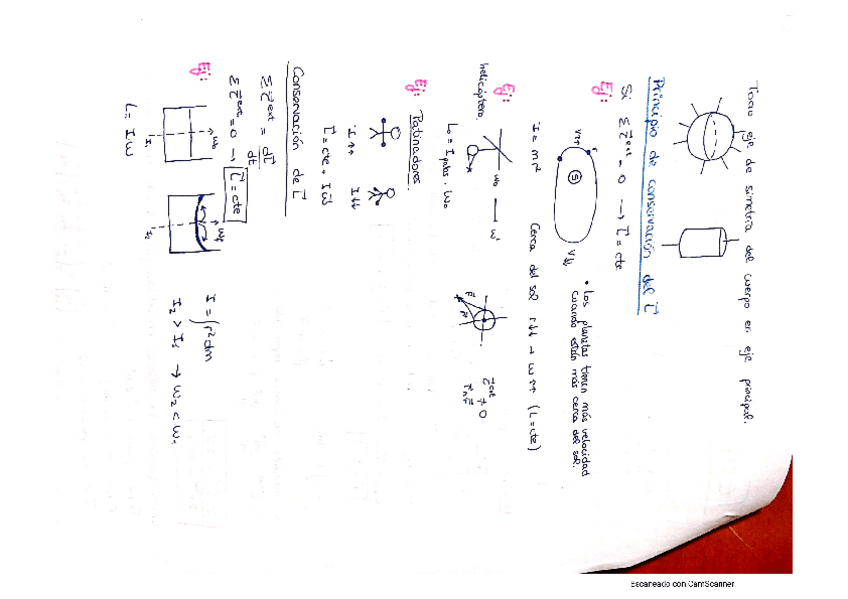 Todo eje de simetría del cuerpo en eje principal.
Principio de conservación del L⃗
Si Σ τ⃗ ext = 0 → L⃗ = cte
Ej:
V↑↑ r S V↓↓
• Los planetas tienen más velocidad
cuando están más cerca del sol.
I = mr² Cerca del sol r↓↓ → ω↑↑ (L = cte)
Ej:
helicóptero.
ω₀ ω'
L₀ = I palas · ω₀
F⃗ r⃗
τ⃗ ext ≠ 0
r⃗ ∧ F⃗
Ej: Patinadores
I↑↑ I↓↓
L⃗ = cte = Iω⃗
Conservación de L⃗
Σ τ⃗ ext = dL⃗/dt
Σ τ⃗ ext = 0 → L⃗ = cte
Ej:
I₁ I₂
L = Iω
I = ∫r²dm
I₂ > I₁ → ω₂ < ω₁
Escaneado con CamScanner